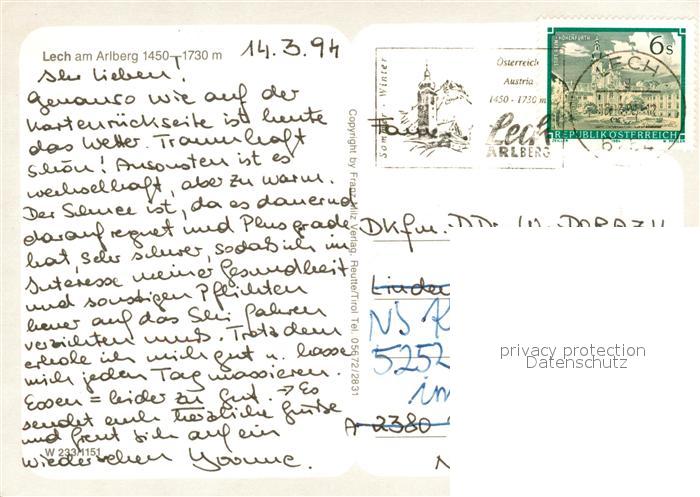 Lech am Arlberg 1450-1730 m
14.3.94
Ihr Lieben!
Genauso wie auf der
Kartenrückseite ist heute
das Wetter. Traumhaft
schön! Ansonsten ist es
wechselhaft, aber zu warm.
Der Schnee ist, da es dauernd
darauf regnet und Plusgrade
hat, sehr schwer, sodaß ich im
Interesse meiner Gesundheit
und sonstigen Pflichten
heuer auf das Ski fahren
verzichten muß. Trotzdem
erhole ich mich gut u. lasse
mich jeden Tag massieren.
Essen = leider zu gut. → Es
sendet euch herzliche Grüße
und freut sich auf ein
Wiedersehen Yvonne.
W 233/1151
Copyright by Franz Milz Verlag, Reutte/Tirol Tel. 05672/2831
Sommer Winter
Österreich
Austria
1450 - 1730 m
Lech
ARLBERG
STIFT REIN-HOHENFURTH
6s
REPUBLIK ÖSTERREICH
LECH
Dkfm. DDr. W.
Linden
5252
im
A-2380
privacy protection
Datenschutz